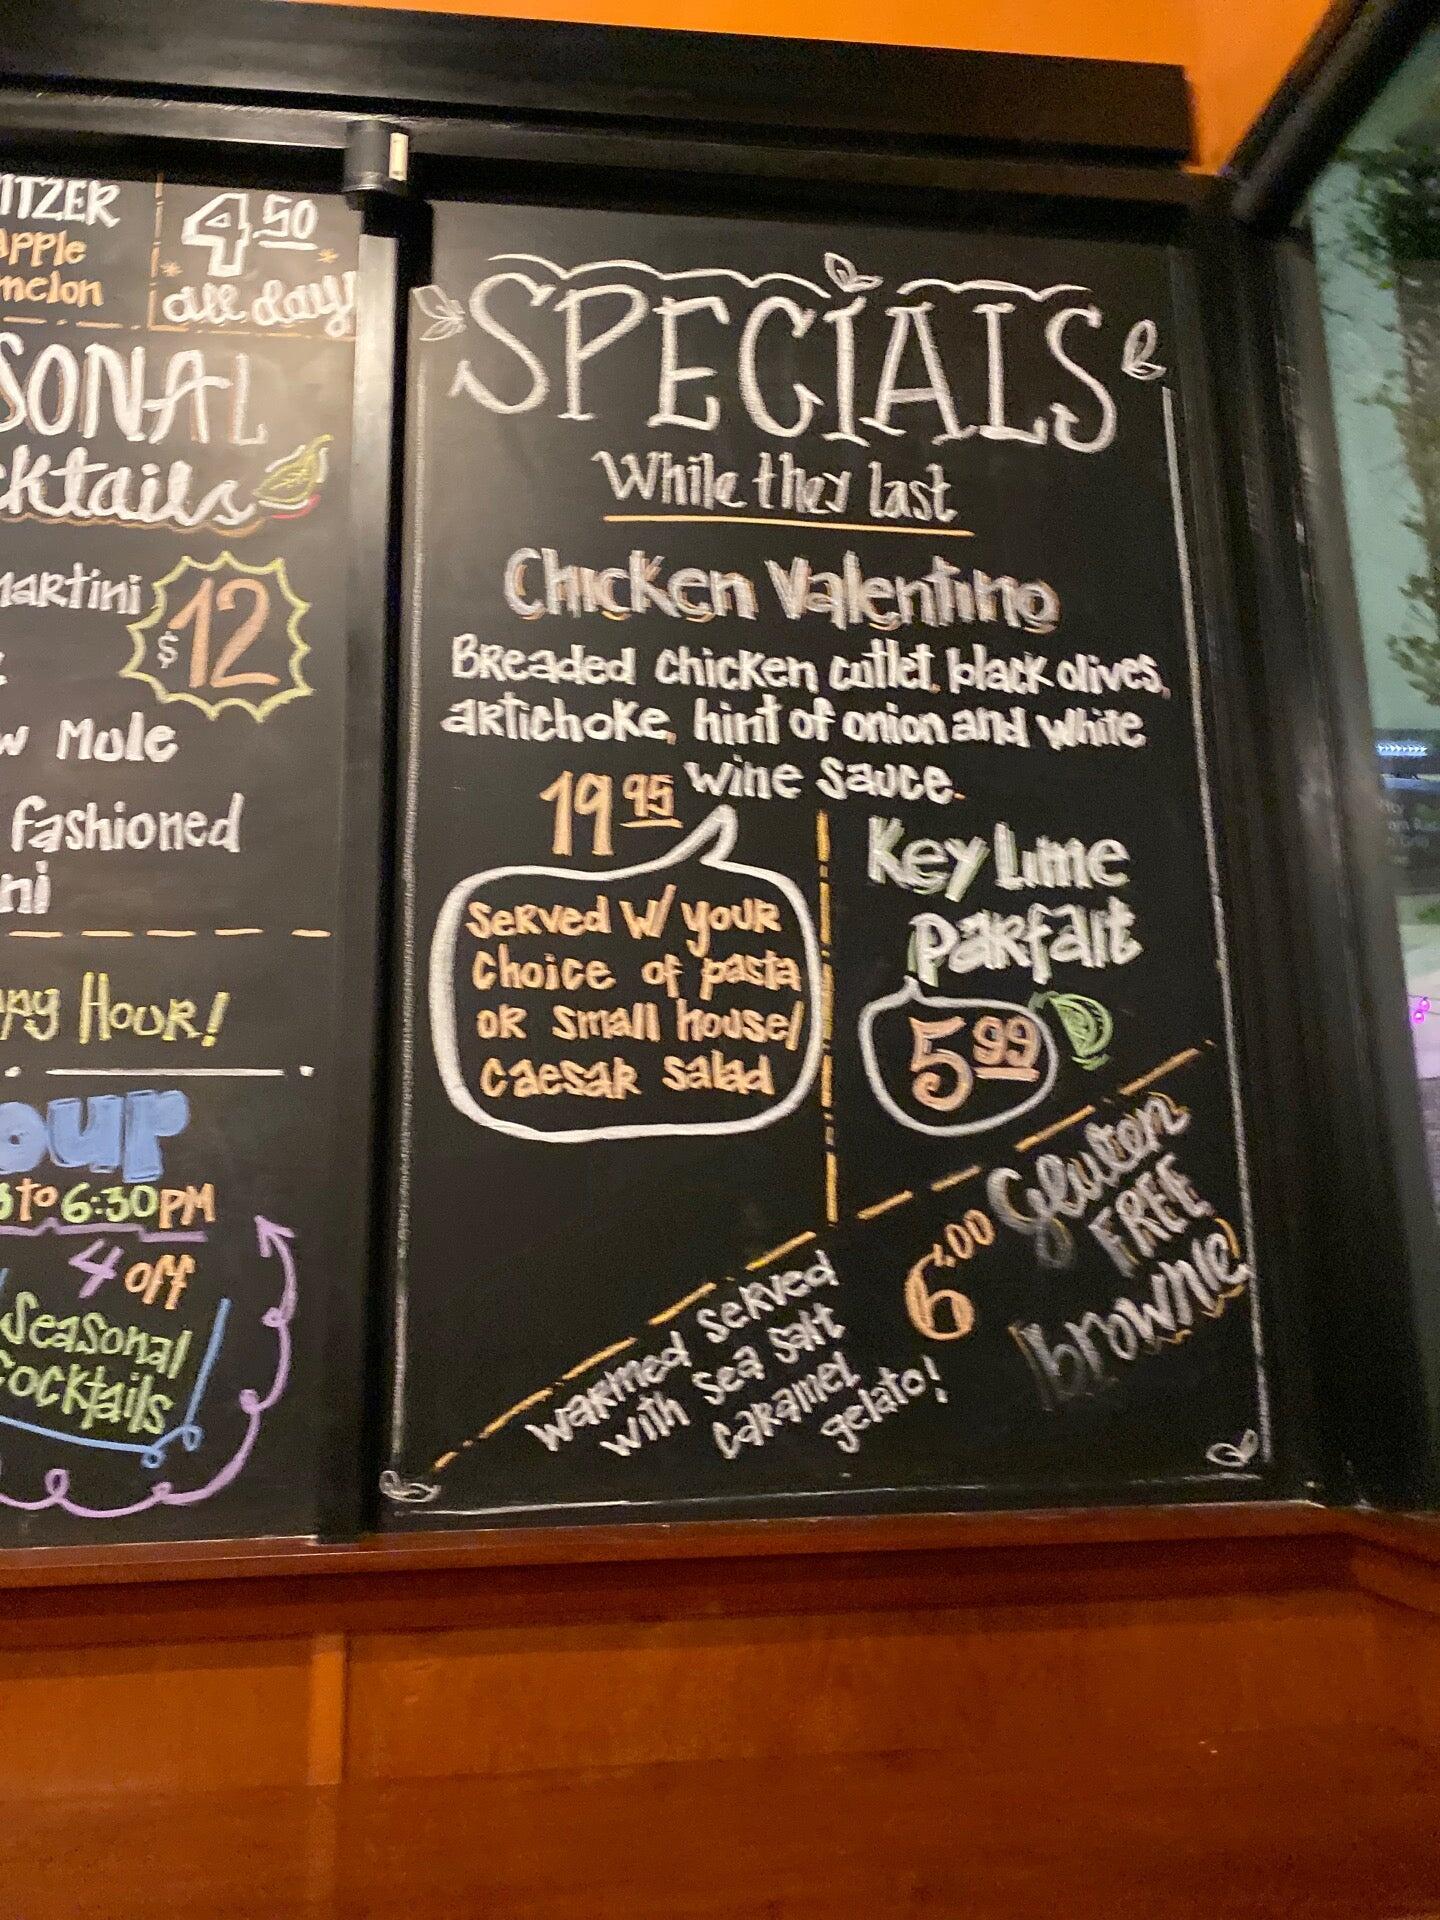 ITZER
apple
melon
4.50
all day!
SONAL
cktails
martini
$12
w Mule
fashioned
ni
ppy Hour!
our
to 6:30PM
4 off
Seasonal
Cocktails
SPECIALS
While they last
Chicken Valentino
Breaded chicken cutlet, black olives,
artichoke, hint of onion and white
wine sauce.
19 95
Served w/ your
choice of pasta
or small house/
caesar salad
Key Lime
Parfait
5 99
Gluten
FREE
brownie
6.00
warmed served
with sea salt
caramel
gelato!